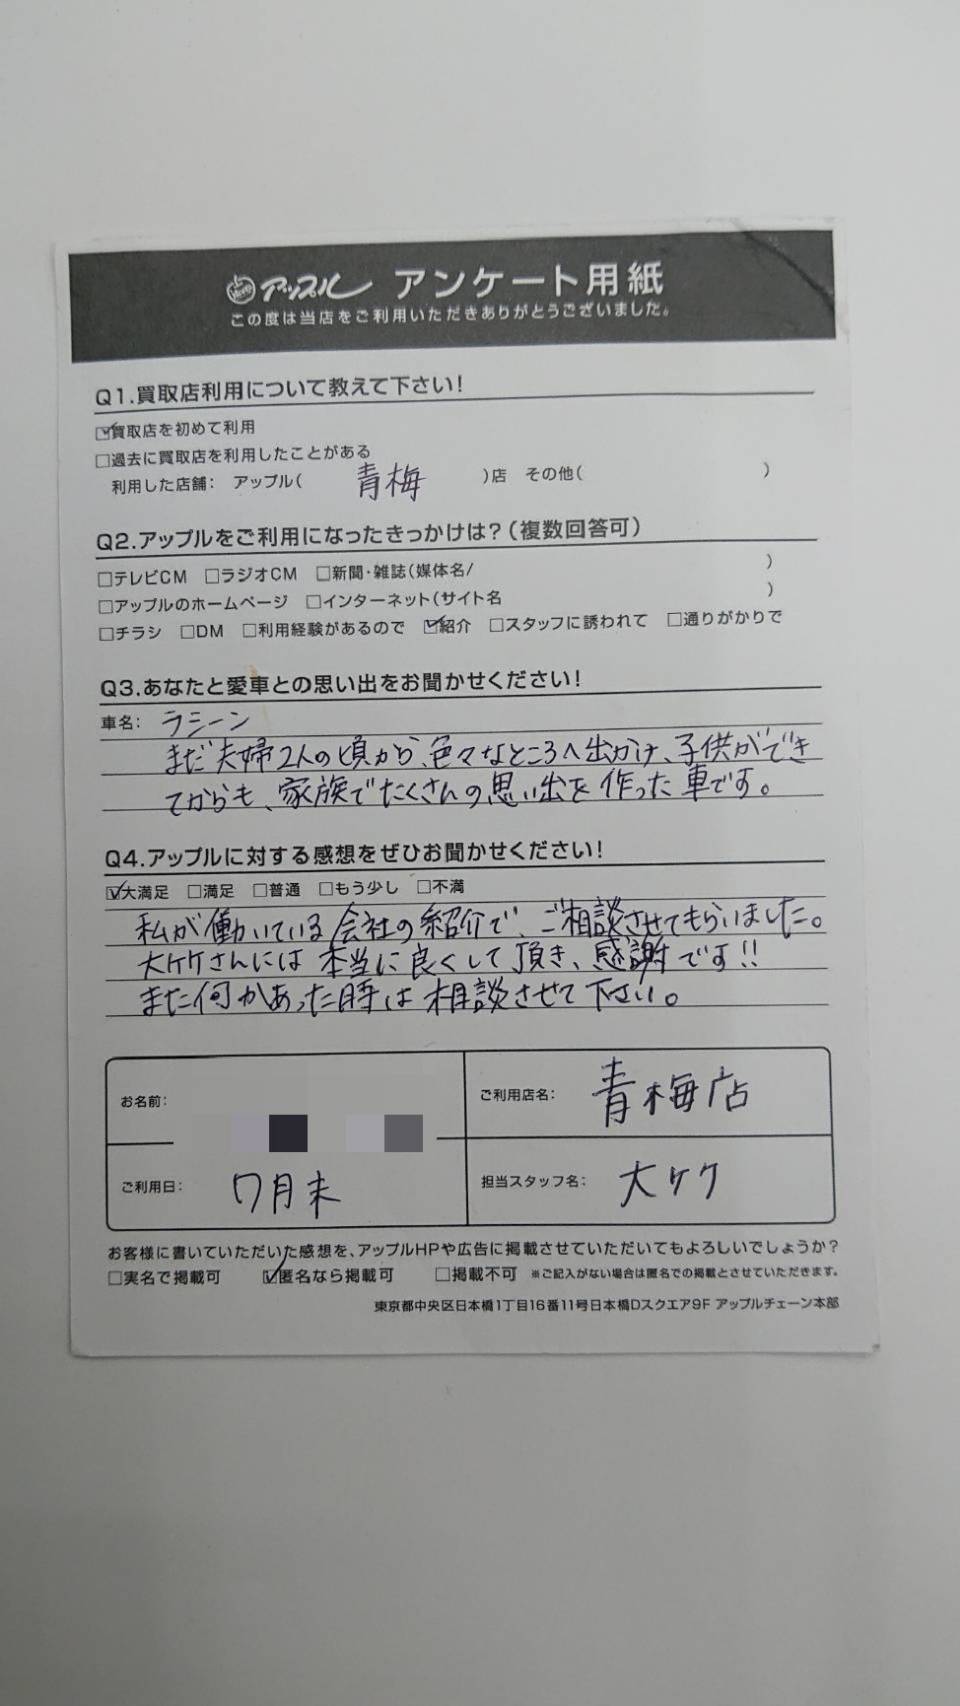 アップル アンケート用紙
この度は当店をご利用いただきありがとうございました。
Q1.買取店利用について教えて下さい!
☑買取店を初めて利用
□過去に買取店を利用したことがある
利用した店舗: アップル( 青梅 )店 その他( )
Q2.アップルをご利用になったきっかけは?(複数回答可)
□テレビCM □ラジオCM □新聞・雑誌(媒体名/ )
□アップルのホームページ □インターネット(サイト名 )
□チラシ □DM □利用経験があるので ☑紹介 □スタッフに誘われて □通りがかりで
Q3.あなたと愛車との思い出をお聞かせください!
車名: ラシーン
まだ夫婦2人の頃から、色々なところへ出かけ、子供ができ
てからも、家族でたくさんの思い出を作った車です。
Q4.アップルに対する感想をぜひお聞かせください!
☑大満足 □満足 □普通 □もう少し □不満
私が働いている会社の紹介で、ご相談させてもらいました。
大ケケさんには本当に良くして頂き、感謝です!!
また何かあった時は相談させて下さい。
お名前:
ご利用店名: 青梅店
ご利用日: 7月末
担当スタッフ名: 大ケケ
お客様に書いていただいた感想を、アップルHPや広告に掲載させていただいてもよろしいでしょうか?
□実名で掲載可 ☑匿名なら掲載可 □掲載不可 ※ご記入がない場合は匿名での掲載とさせていただきます。
東京都中央区日本橋1丁目16番11号日本橋Dスクエア9F アップルチェーン本部